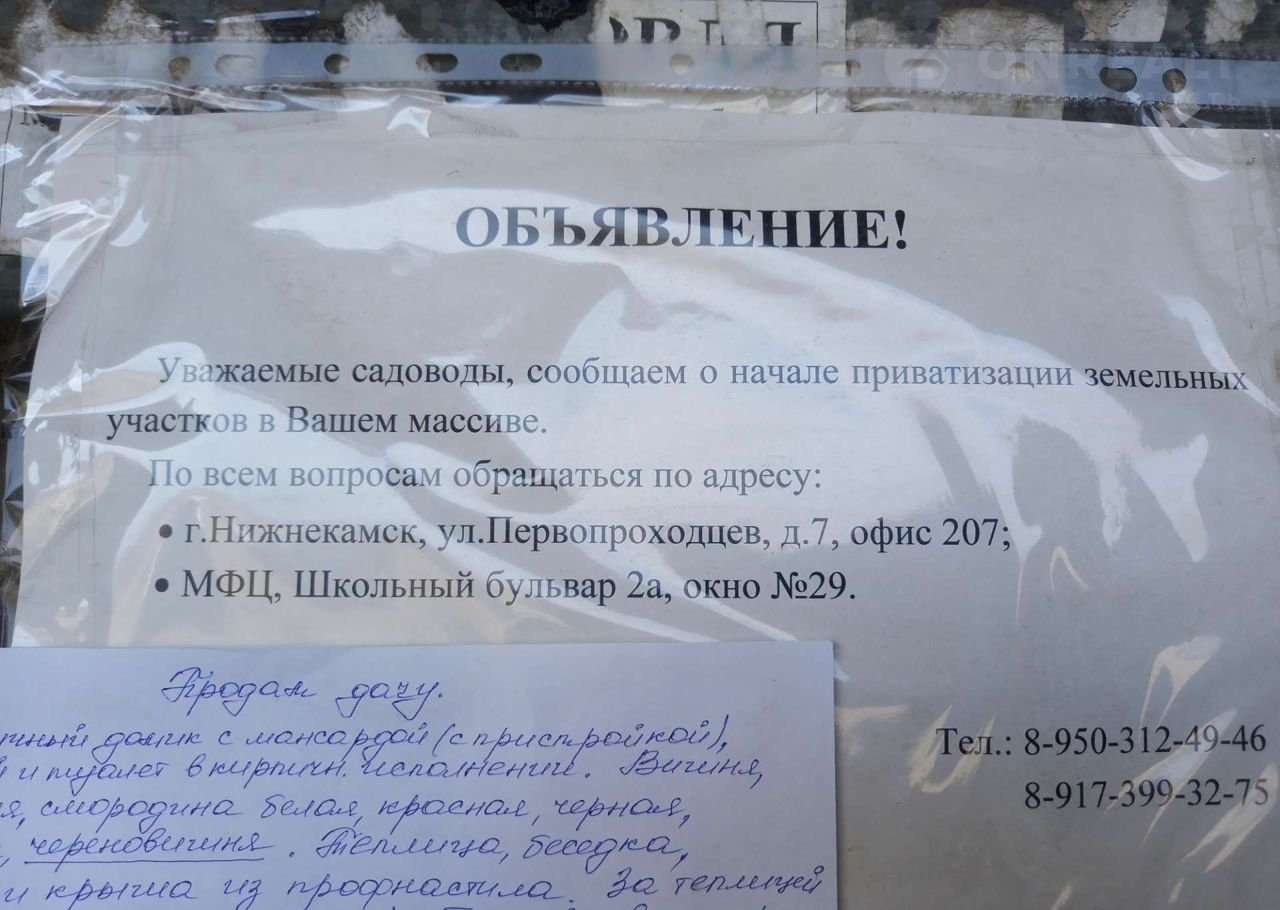 ONREALT
ОБЪЯВЛЕНИЕ!
Уважаемые садоводы, сообщаем о начале приватизации земельных
участков в Вашем массиве.
По всем вопросам обращаться по адресу:
• г.Нижнекамск, ул.Первопроходцев, д.7, офис 207;
• МФЦ, Школьный бульвар 2а, окно №29.
Тел.: 8-950-312-49-46
8-917-399-32-75
Продам дачу.
домик с мансардой (с пристройкой),
и туалет в кирпичн. исполнении. Вишня,
смородина белая, красная, черная,
череновишня. Теплица, беседка,
и крыша из профнастила. За теплицей